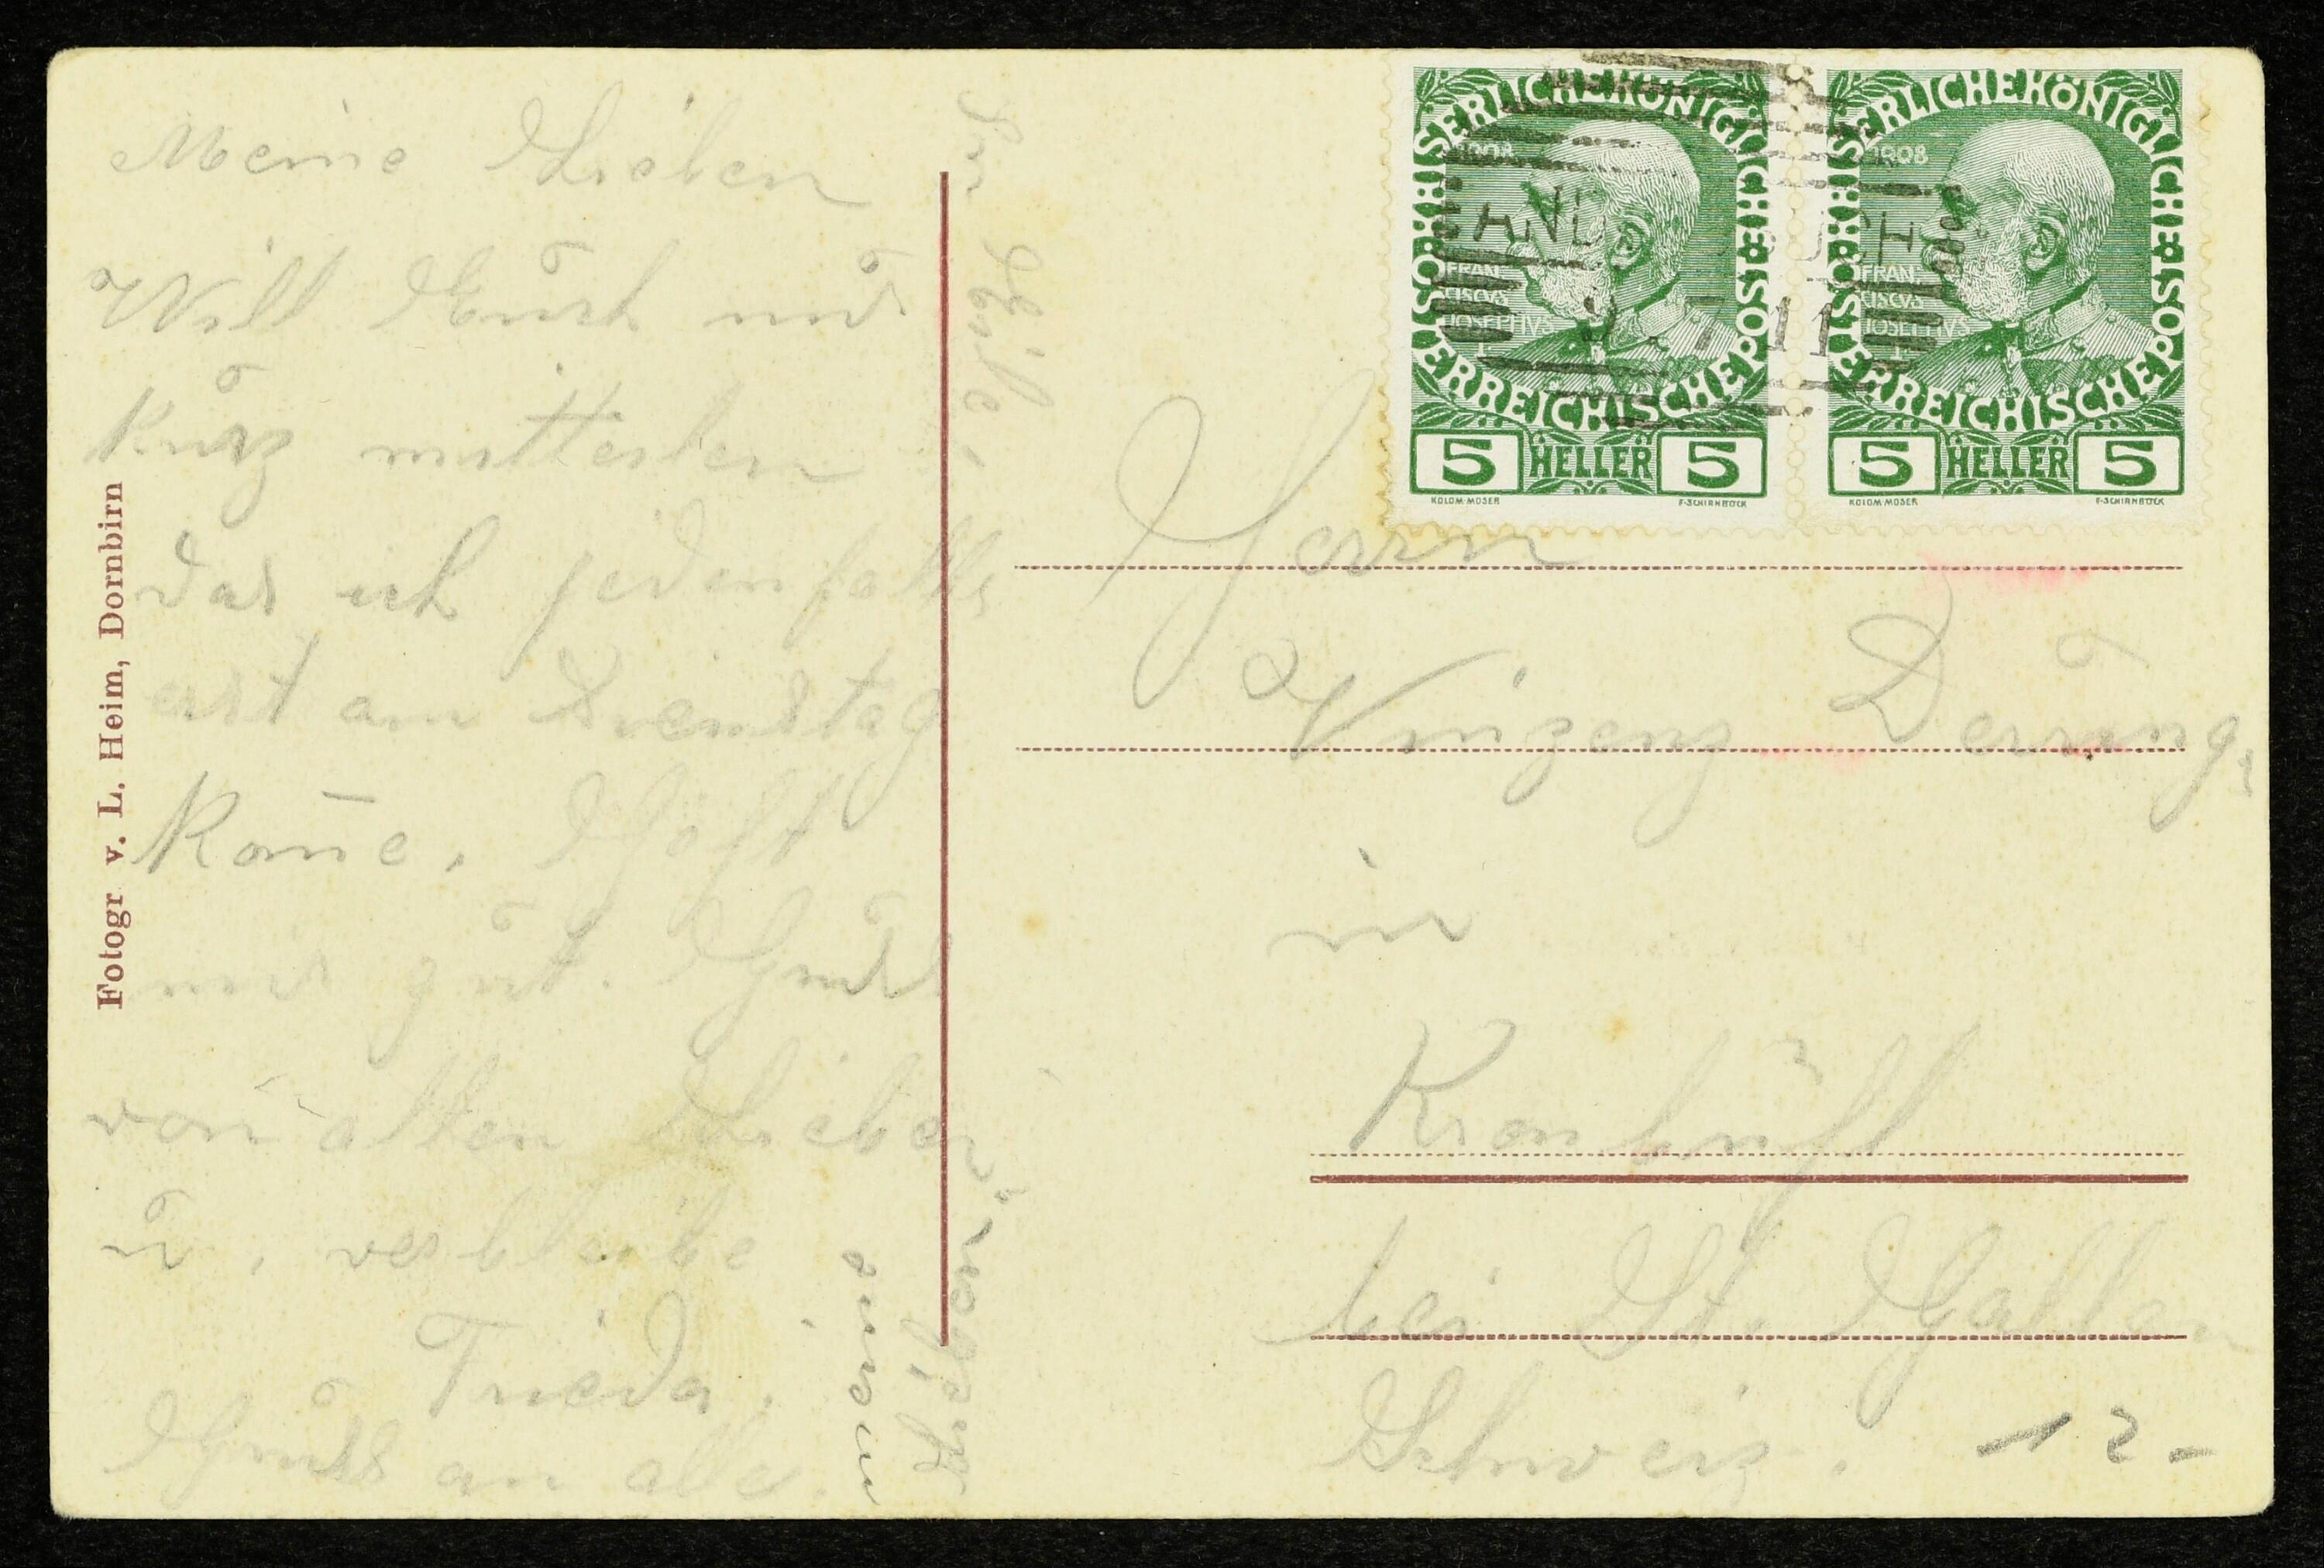 Meine Lieben
Will Euch nur
kurz mitteilen
das ich jedenfalls
erst am Dienstag
kome. Hoft
nur gut. Gruß
von allen Lieben
u. verbleibe
Frieda.
Gruß an alle.
meine
Lieben
in
Fotogr v. L. Heim, Dornbirn
KAISERLICHE KÖNIGLICHE ÖSTERREICHISCHE POST
1908
FRAN
CISCVS
IOSEPHVS
I
5 HELLER 5
KOLOM MOSER F·SCHIRNBÖCK
KAISERLICHE KÖNIGLICHE ÖSTERREICHISCHE POST
1908
FRAN
CISCVS
IOSEPHVS
I
5 HELLER 5
KOLOM MOSER F·SCHIRNBÖCK
9. 7 11
Herrn
Vinzenz Derung,
in
Kronbühl
bei St. Gallen
Schweiz.
12-